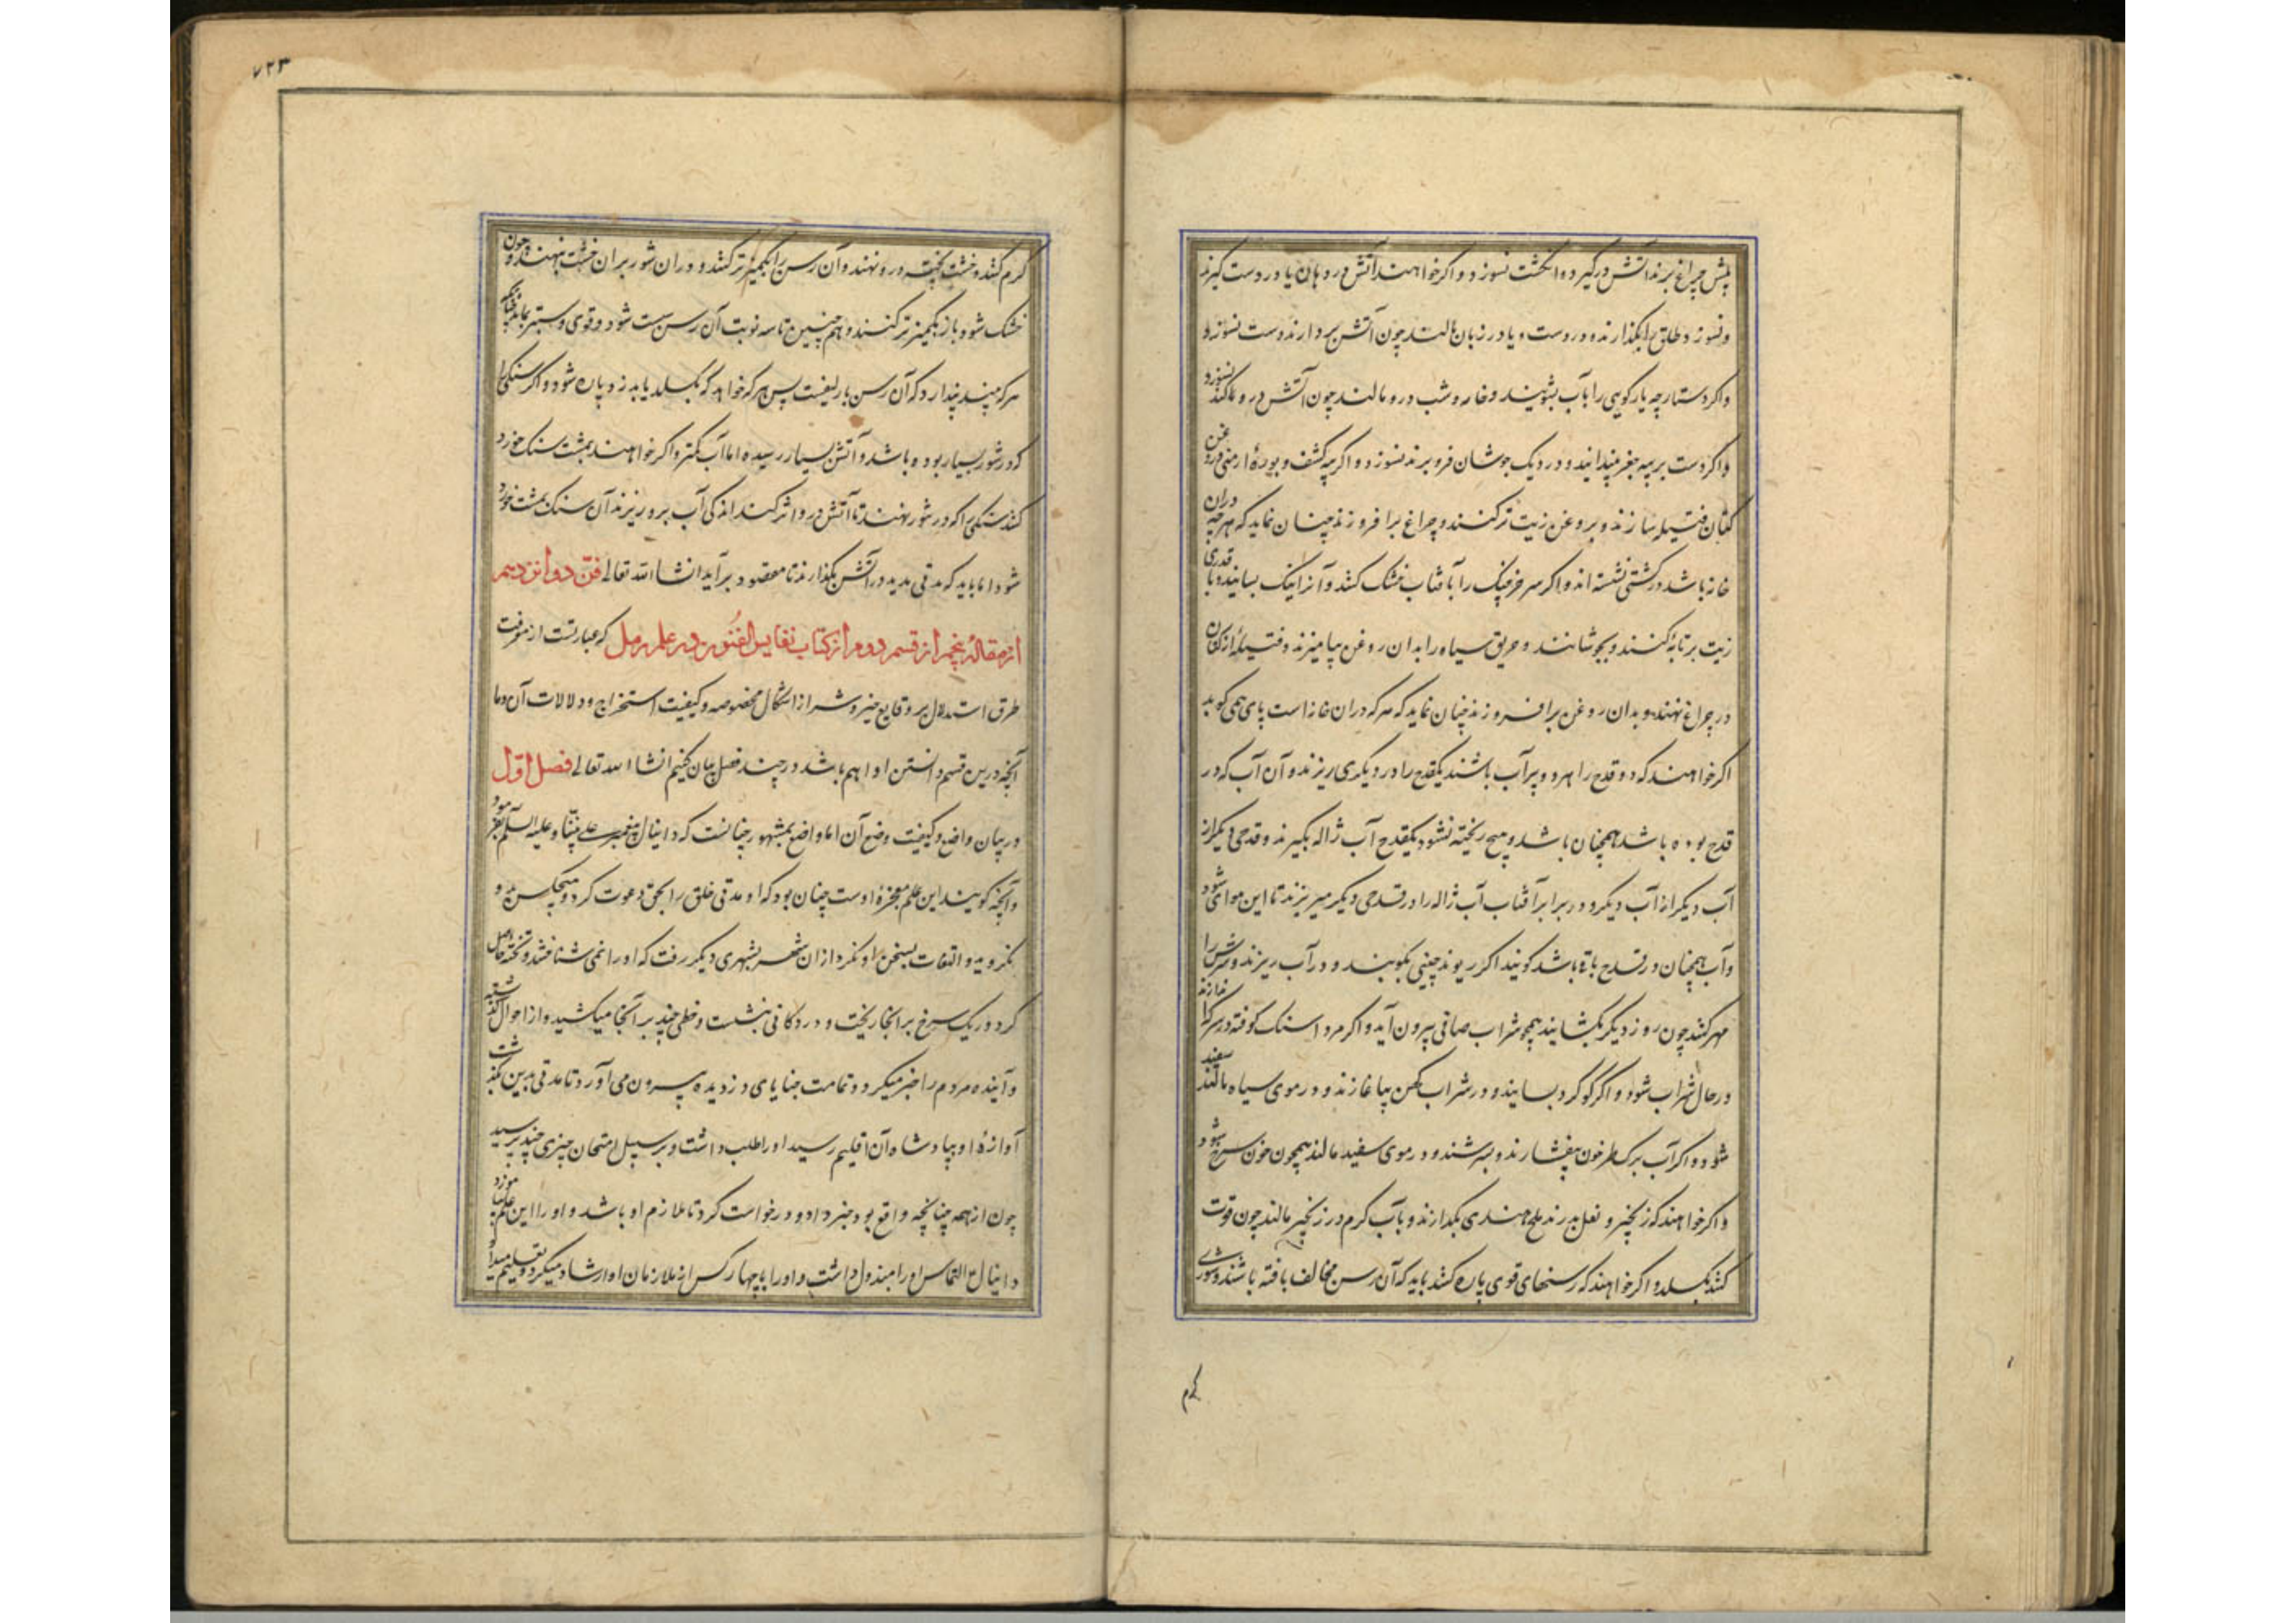 پیش چراغ برند آتش درگیرد و انکشت نسوزد و اکر خواهند آتش در دهان یا در دست گیرند
و نسوزد طلق را بکدازند و در دست و یا در زبان مالند چون آتش بردارند دست نسوزد
و اکر دستارچه یا رکویی را بآب بشویند و خار و شب درو مالند چون آتش درو مالند نسوزد
و اکر دست بر پیه جغز بیندایند و در دیک جوشان فرو برند نسوزد و اکر پیه کشف و بورهٔ ارمنی در روغن
کتان فتیله سازند و بروغن زیت تر کنند و چراغ برافروزند چنان نماید که هرچه دران
خانه باشد در کشتی نشسته اند و اکر سر خرچنک را بآفتاب خشک کنند و آنرا نیک بسایند و با قدری
زیت بر تابه کنند و بجوشانند و حریق سیاه را بدان روغن بیامیزند و فتیلهٔ از کتان
در چراغ نهند و بدان روغن برافروزند چنان نماید که هر که دران خانه است پای همی کوبد
اکر خواهند که دو قدح را هر دو پر آب باشند یکقدح را در دیکری ریزند و آن آب که در
قدح بوده باشد همچنان باشد و هیچ ریخته نشود یکقدح آب ژاله بکیرند و قدحی دیکر از
آب دیکر از آب دیکر و در برابر آفتاب آب ژاله را در قدحی دیکر میریزند تا این هوائی شود
و آب همچنان در قدح باقی باشد کویند اکر ریوند چینی بکوبند و در آب ریزند و سرش را
مهر کنند چون روز دیکر بکشایند همچو شراب صافی بیرون آید و اکر مرداسنک کوفته در سرکه اندازند
در حال شراب شود و اکر کوکرد بسایند و در شراب کهن بیاغازند و در موی سیاه مالند سفید
شود و اکر آب برک طرخون بیفشارند و بسرشند و در موی سفید مالند همچون خون سرخ شود
و اکر خواهند که زنجیر و نعل بدرند ملح هندی بکدازند و بآب کرم در زنجیر مالند چون قوت
کنند بکسلد و اکر خواهند که رسنهای قوی پاره کنند باید که آن رسن مخالف بافته باشند و شوری
کرم
۷۲۳
کرم کنند و خشت پخته درو نهند و آن رسن را بکمیز تر کنند و دران شور بران خشت نهند و چون
خشک شود باز بکمیز تر کنند و هم چنین تا سه نوبت آن رسن سست شود و قوی و ستبر نماید چنانکه
هر که بیند پندارد که آن رسن باریفست پس هر که خواهد که بکسلد یابد زود پاره شود و اکر سنکی را
که در شور بسیار بوده باشد و آتش بسیار رسیده اما آب کمتر و اکر خواهند بمشت سنک خورد
کنند سنکی را که در شور نهند تا آتش درو اثر کند اندکی آب برو ریزند آن سنک بمشت خورد
شود اما باید که مدتی مدید در آتش بکذارند تا مقصود برآید انشا الله تعالی فنّ دوانزدهم
از مقالهٔ پنجم از قسم دوم از کتاب نفایس الفنون در علم رمل که عبارتست از معرفت
طرق استدلال بر وقایع خیر و شر از اشکال مخصوصه و کیفیت استخراج و دلالات آن و ما
آنچه درین قسم دانستن او اهم باشد در چند فصل بیان کنیم انشا الله تعالی فصل اوّل
در بیان واضع و کیفیت وضع آن اما واضع مشهور چنانست که دانیال پیغمبر علی نبیّنا و علیه السلم بود
و آنچه کویند این علم معجزهٔ اوست چنان بود که او مدتی خلق را بحق دعوت کرد و هیچکس بدو
نکروید و التفات بسخن او نکرد ازان شهر بشهری دیکر رفت که او را نمی شناختند و تخته حاصل
کرد و ریک سرخ بر انجا ریخت و در دکانی بنشست و خطی چند بر آنجا میکشید و از احوال کذشته
و آینده مردم را خبر میکرد و تمامت خبایای دزدیده بیرون می آورد تا مدتی بدین بکذشت
آوازهٔ او بپادشاه آن اقلیم رسید او را طلب داشت و بر سبیل امتحان چیزی چند پرسید
چون از همه چنانچه واقع بود خبر داد و درخواست کرد تا ملازم او باشد و او را این علم بیاموزد
دانیال ع التماس او را مبذول داشت و او را با چهار کس از ملازمان او ارشاد میکرد و تعلیم میداد